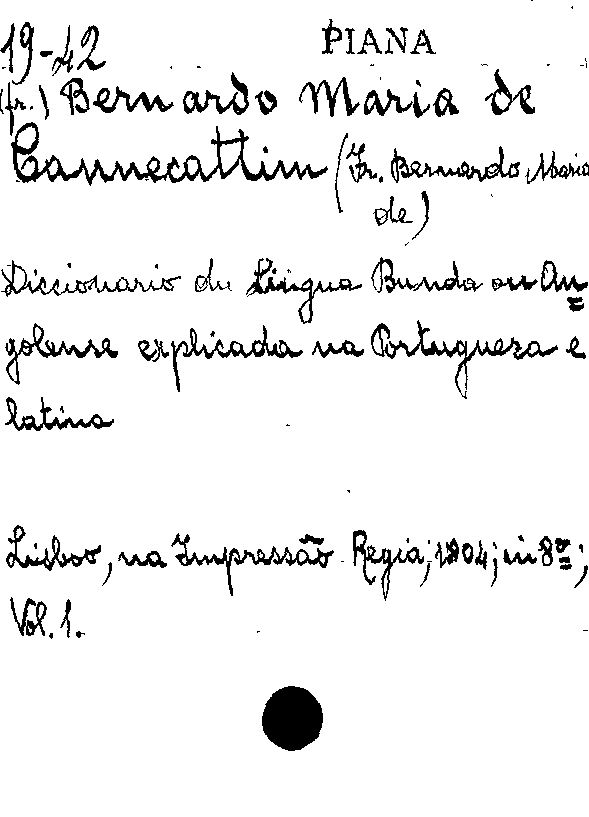 19-42 PIANA
(fr.) Bernardo Maria de
Cannecattim (Fr. Bernardo Maria
de)
Diccionario da Lingua Bunda ou An=
golense explicada na Portugueza e
latina
Lisboa, na Impressão Regia; 1804; in 8º;
Vol. 1.